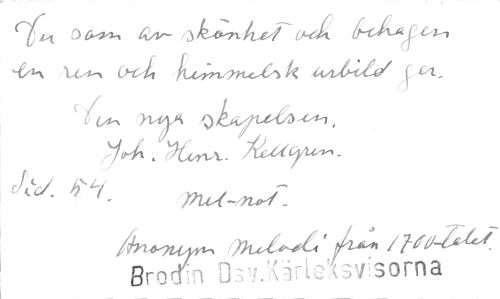 Du som av skönhet och behagen
en ren och himmelsk urbild ger.
Den nya skapelsen.
Joh. Henr. Kellgren.
Sid. 54.
Mel-not.
Anonym melodi från 1700-talet.
Brodin Dsv.Kärleksvisorna